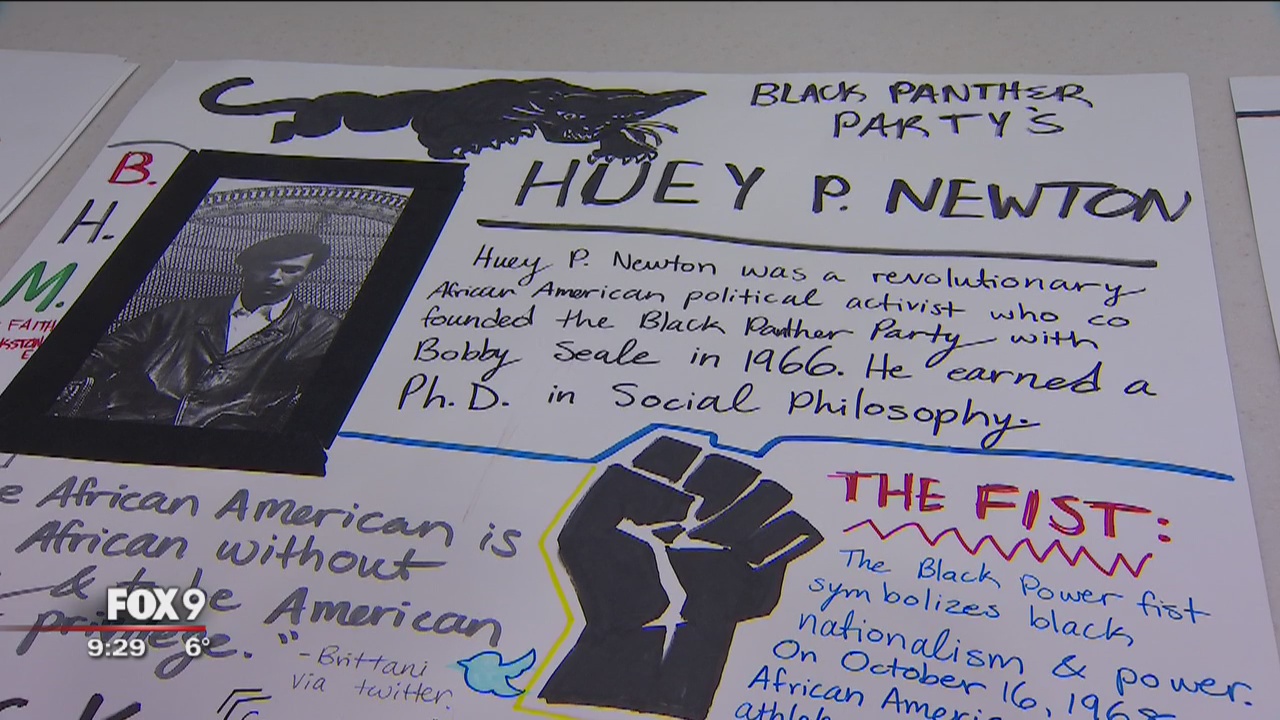 BLACK PANTHER
PARTY'S
HUEY P. NEWTON
B.
H.
M.
FAITH
Huey P. Newton was a revolutionary
African American political activist who co
founded the Black Panther Party with
Bobby Seale in 1966. He earned a
Ph.D. in Social Philosophy.
African American is
African without
& to be American
privilege."
-Brittani
via twitter.
THE FIST:
The Black Power fist
symbolizes black
nationalism & power.
On October 16, 1968
African America
athle
FOX 9
9:29 6°